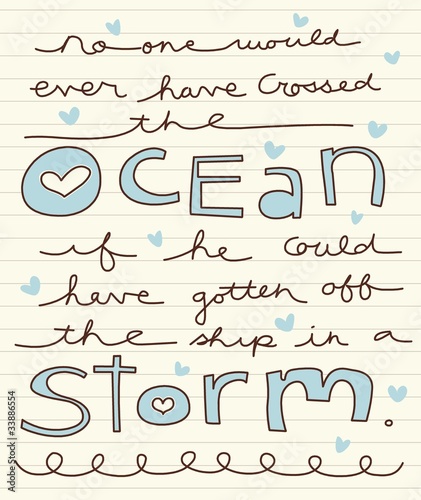 no one would
ever have crossed
the
OCEan
if he could
have gotten off
the ship in a
Storm.